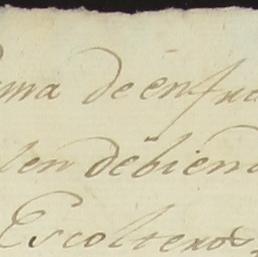 ma de en fra
len debiend
Escolteros